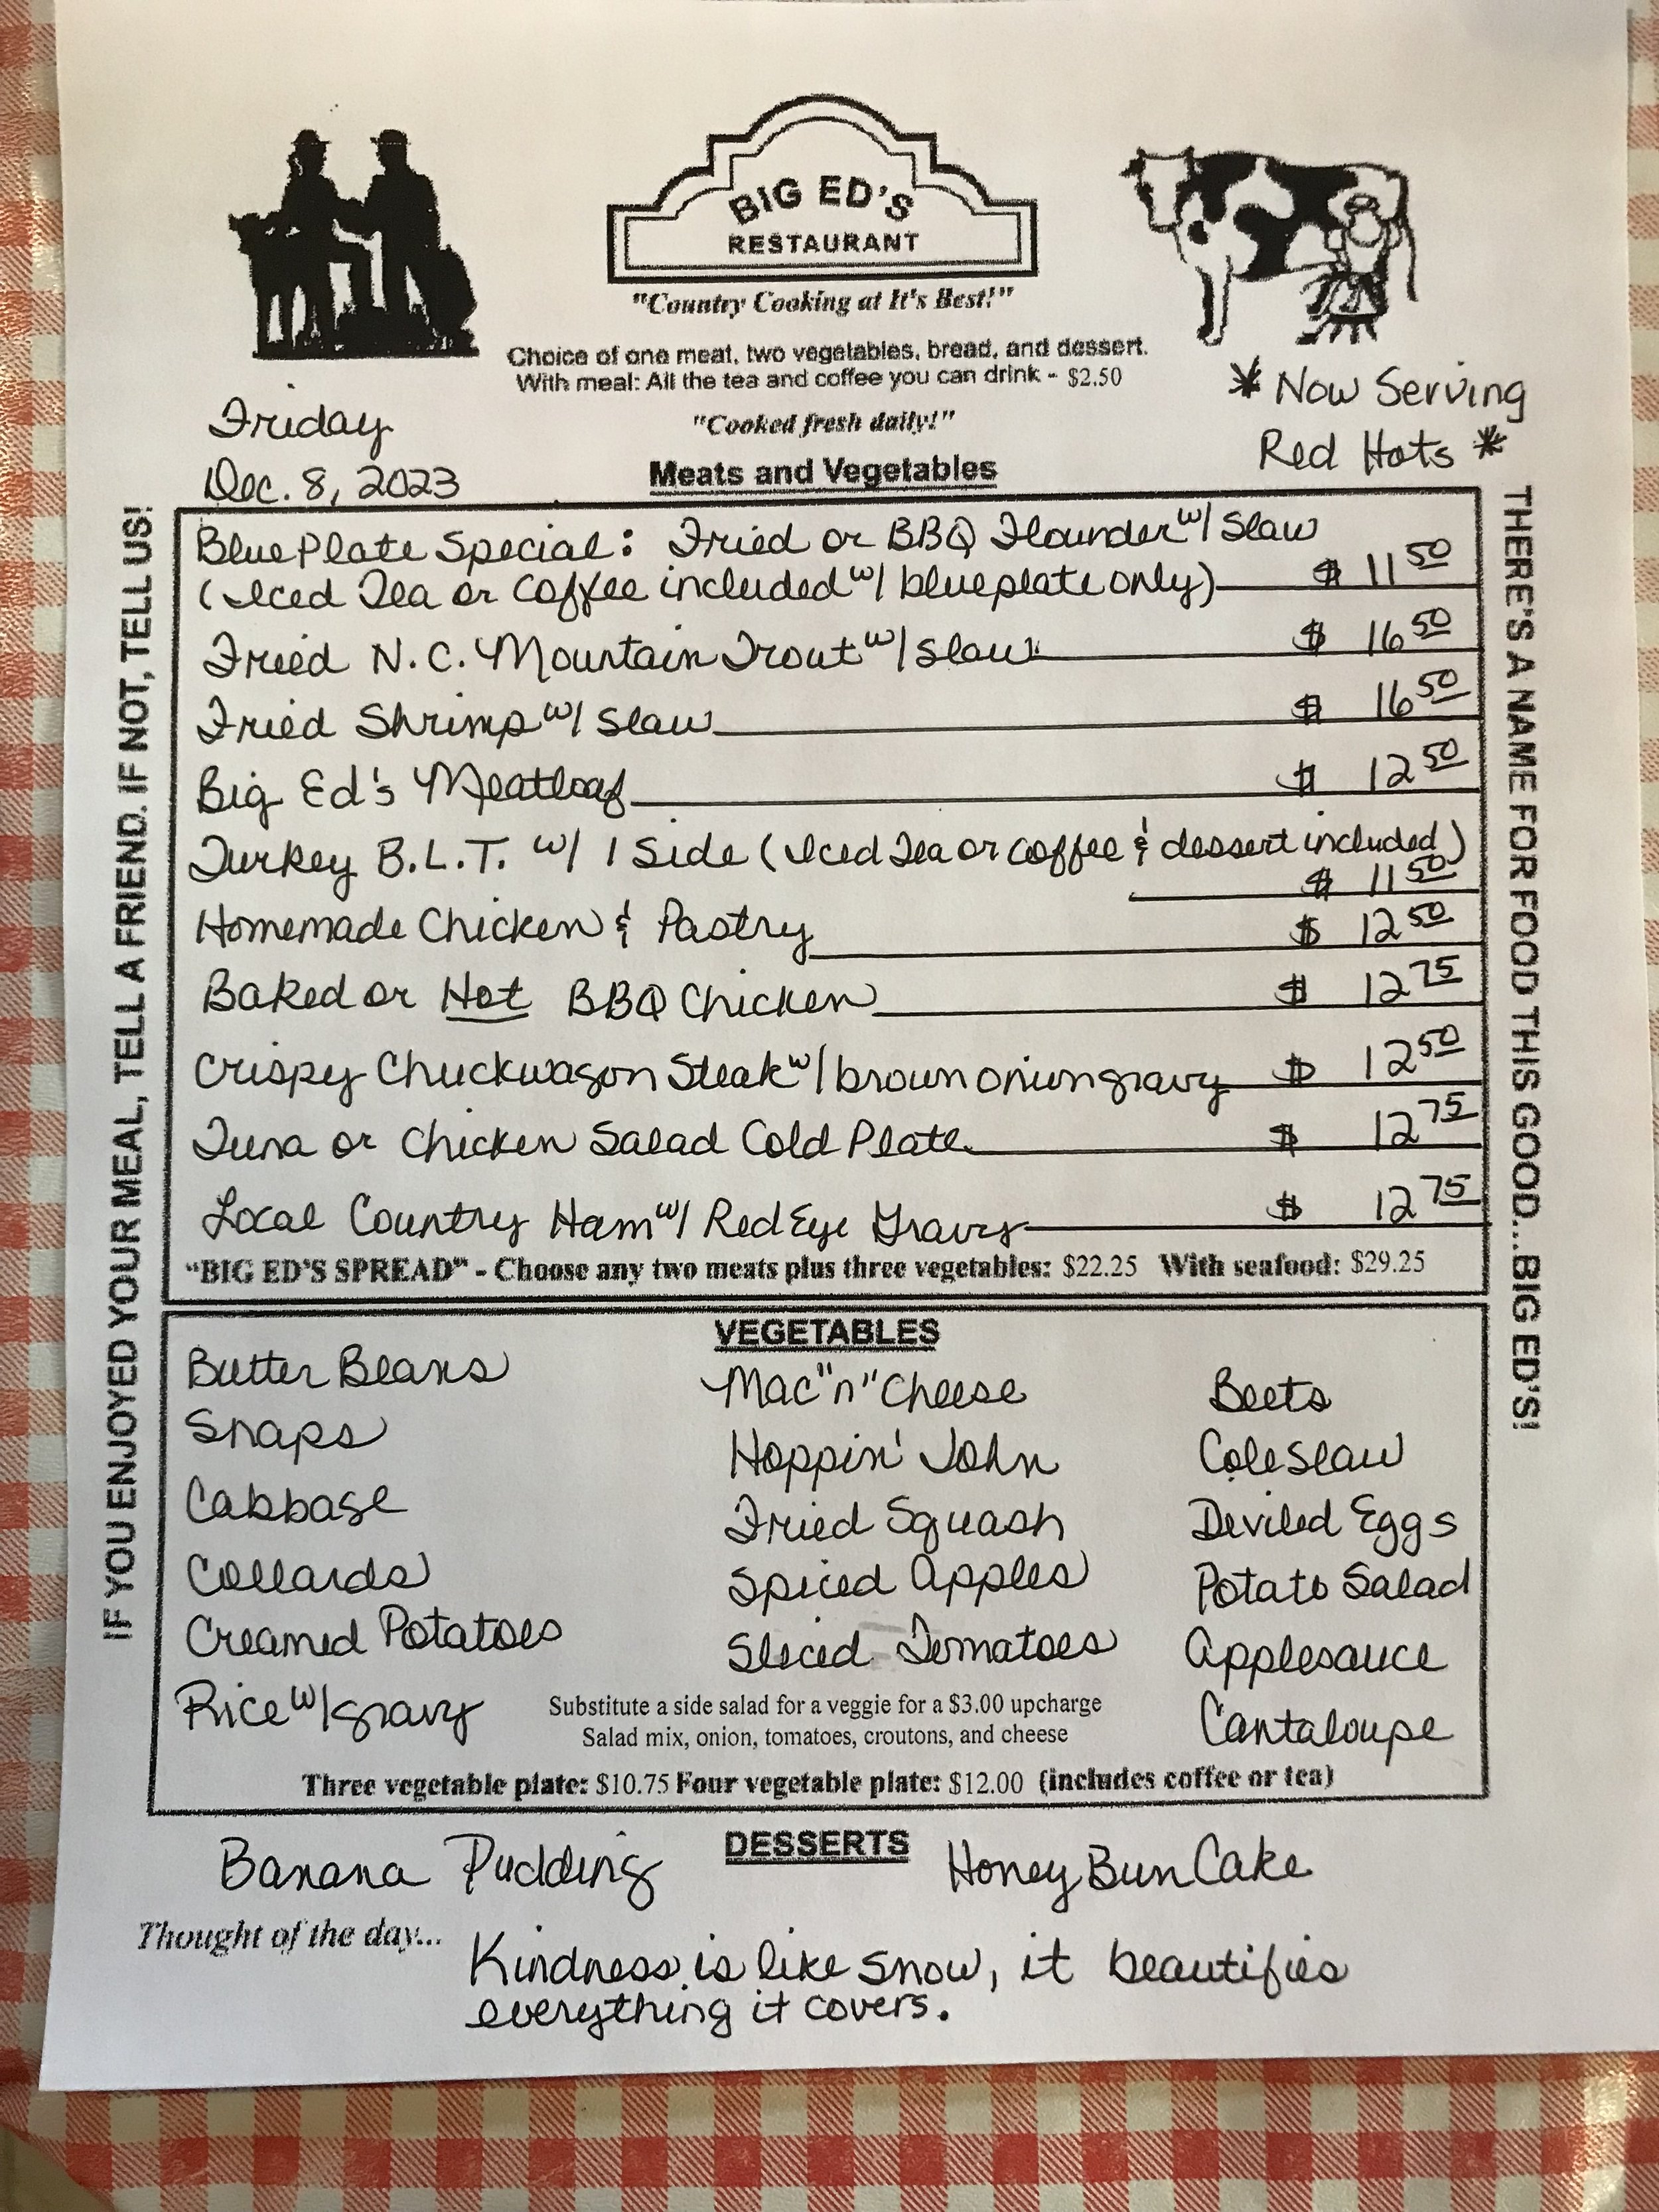 BIG ED'S
RESTAURANT
"Country Cooking at It's Best!"
Choice of one meat, two vegetables, bread, and dessert.
With meal: All the tea and coffee you can drink - $2.50
"Cooked fresh daily!"
* Now Serving
Red Hots *
Friday
Dec. 8, 2023
Meats and Vegetables
Blue Plate Special: Fried or BBQ Flounder w/ Slaw
(Iced Tea or Coffee included w/ blue plate only) $ 11 50
Fried N.C. Mountain Trout w/ slaw $ 16 50
Fried Shrimp w/ slaw $ 16 50
Big Ed's Meatloaf $ 12 50
Turkey B.L.T. w/ 1 Side (Iced Tea or Coffee & dessert included)
$ 11 50
Homemade Chicken & Pastry $ 12 50
Baked or Hot BBQ Chicken $ 12 75
Crispy Chuckwagon Steak w/ brown onion gravy $ 12 50
Tuna or Chicken Salad Cold Plate $ 12 75
Local Country Ham w/ Red Eye Gravy $ 12 75
"BIG ED'S SPREAD" - Choose any two meats plus three vegetables: $22.25 With seafood: $29.25
VEGETABLES
Butter Beans
Snaps
Cabbage
Collards
Creamed Potatoes
Rice w/ gravy
Mac "n" Cheese
Hoppin' John
Fried Squash
Spiced Apples
Sliced Tomatoes
Beets
Cole Slaw
Deviled Eggs
Potato Salad
Applesauce
Cantaloupe
Substitute a side salad for a veggie for a $3.00 upcharge
Salad mix, onion, tomatoes, croutons, and cheese
Three vegetable plate: $10.75 Four vegetable plate: $12.00 (includes coffee or tea)
DESSERTS
Banana Pudding
Honey Bun Cake
Thought of the day...
Kindness is like snow, it beautifies
everything it covers.
IF YOU ENJOYED YOUR MEAL, TELL A FRIEND. IF NOT, TELL US!
THERE'S A NAME FOR FOOD THIS GOOD...BIG ED'S!